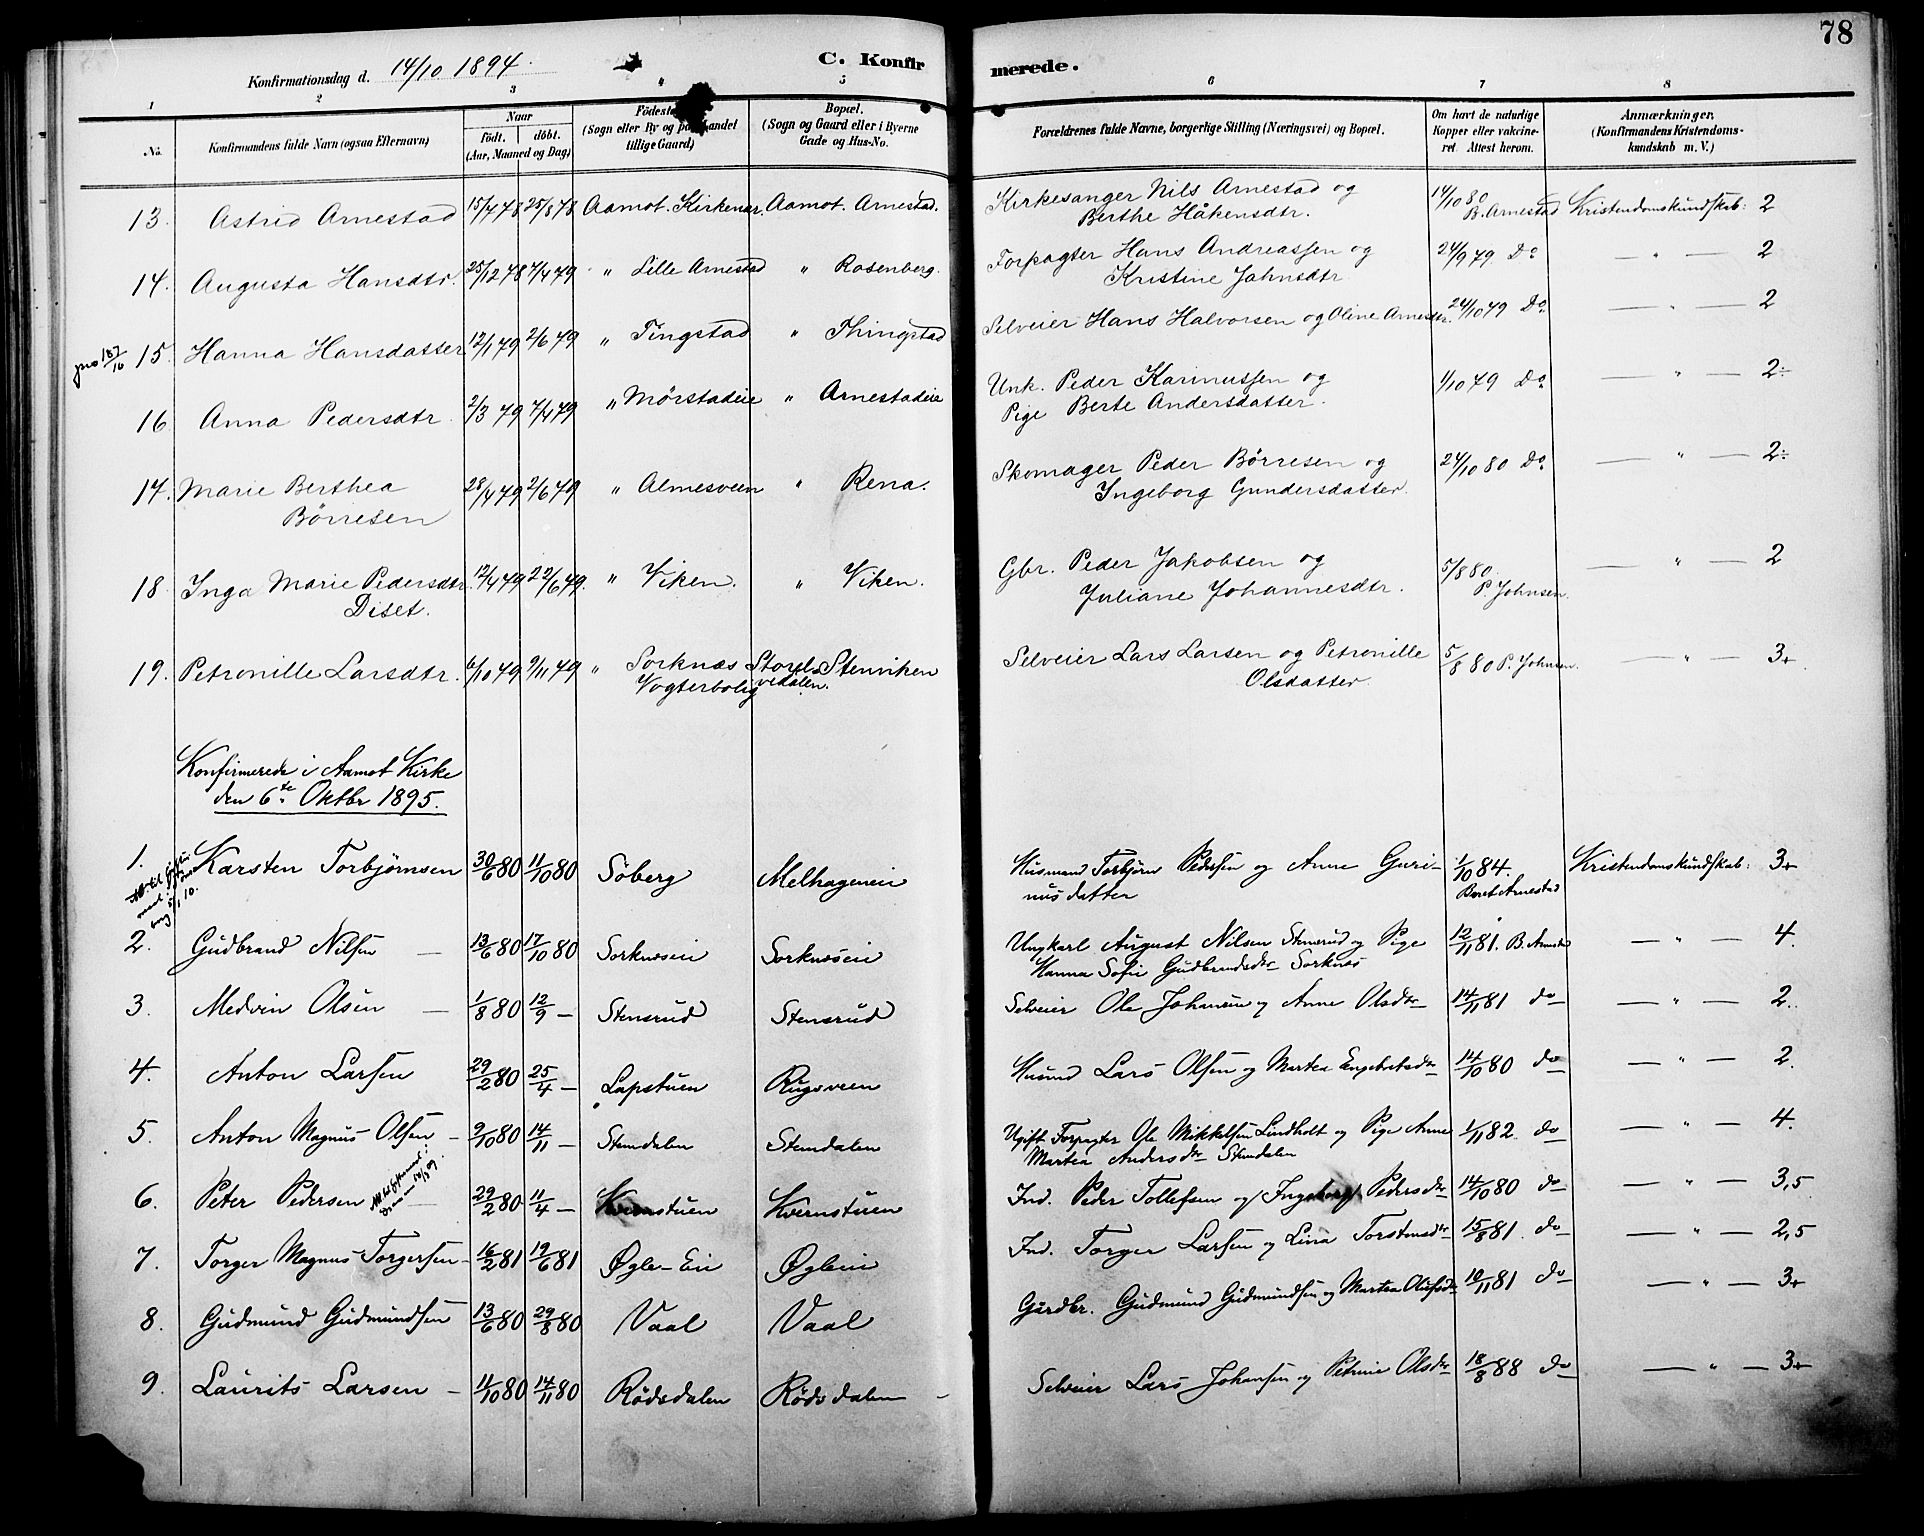 78
Konfirmationsdag d. 14/10 1894.
C. Konfir
merede.
1 2 3 5 6 7 8
No. Konfirmandens fulde Navn (ogsaa Efternavn) Naar født. døbt. (Aar, Maaned og Dag) (Sogn eller By og tillige Gaard) Bopæl. (Sogn og Gaard eller i Byerne Gade og Hus-No. Forældrenes fulde Navne, borgerlige Stilling (Næringsvei) og Bopæl. Om havt de naturlige Kopper eller vakcineret. Attest herom. Anmærkninger. (Konfirmandens Kristendomskundskab m. V.)
13. Astrid Arnestad 15/7 78 25/8 78 Aamot. Kirkenær. Aamot. Arnestad. Kirkesanger Nils Arnestad og 14/10 80 Kristendomskundskab: 2
Berthe Håkensdtr. B. Arnestad
14. Augusta Hansdtr. 25/12 78 7/4 79 " Lille Arnestad " Rosenberg. Forpagter Hans Andreassen og 24/9 79 Do — " — 2
Kristine Jahnsdtr
15. Hanna Hansdatter 12/1 79 2/6 79 " Tingstad " Thingstad Selveier Hans Halvorsen og Oline Arnesdtr. 24/10 79 Do — " — 2
16. Anna Pedersdtr. 2/3 79 7/4 79 " Mørstadeie " Arnestadeie Unk. Peder Karinussen og 1/10 79 Do — " — 2÷
Pige Berte Andersdatter.
17. Marie Berthea 28/4 79 2/6 79 " Almesveen " Rena. Skomager Peder Børresen og 24/10 80 Do — " — 2÷
Børresen Ingeborg Gundersdatter.
18. Inga Marie Pedersdtr. 12/4 79 22/6 79. " Viken. " Viken. Gbr. Peder Jakobsen og 5/8 80. — " — 2
Diset. Juliane Johannesdtr. P. Johnsen.
19. Petronille Larsdtr. 6/10 79 9/11 79 " Sorknæs Storelvedalen. Stenviken Selveier Lars Larsen og Petronille 5/8 80 P. Johnsen. — " — 3+
Vogterbolig Olsdatter.
Konfirmerede i Aamot Kirke
den 6te Oktbr 1895.
1. Karsten Torbjørnsen 30/6 80 11/10 80 Söberg Melhageneie Husmand Torbjørn Pedersen og Anne Guri- 1/10 84. Kristendomskundskab: 3+
nusdatter Beret Arnestad
2. Gudbrand Nilsen — 13/6 80 17/10 80 Sorknæseie Sorknæseie Ungkarl August Nilsen Stensrud og Pige 12/11 81. B. Arnestad — " — 4.
Hanna Sofie Gudbrandsdtr Sorknæs
3. Medvin Olsen — 1/8 80 12/9 — Stensrud Stensrud Selveier Ole Johansen og Anne Olsdtr 14/11 81 do — " — 2.
4. Anton Larsen 29/2 80 25/4 — Lapstuen Rugsveen Husmd Lars Olsen og Martea Engebretsdtr 14/10 80 do — " — 2.
5. Anton Magnus Olsen — 9/10 80 14/11 — Stemdalen Stemdalen Ugift Forpagter Ole Mikkelsen Lindholt og Pige Anne 1/11 82. do — " — 4.
Martea Andersdtr Stemdalen
6. Peter Pedersen — 29/2 80 11/4 — Kvernstuen Kvernstuen Ind. Peder Tollefsen og Ingeborg Pedersdtr 14/10 80 do — " — 3,5
7. Torger Magnus Torgersen — 16/2 81 19/6 81 Øgle-Eie Øgleeie Ind. Torger Larsen og Lina Torstensdtr 15/8 81. do — " — 2,5
8. Gudmund Gudmundsen 13/6 80 29/8 80 Vaal Vaal Gårdbr. Gudmund Gudmundsen og Martea Olufsdtr 10/11 81 do — " — 3+
9. Laurits Larsen — 11/10 80 14/11 80 Rødsdalen Rødsdalen Selveier Lars Johansen og Petrine Olsdtr 18/8 88 do — " — 3+